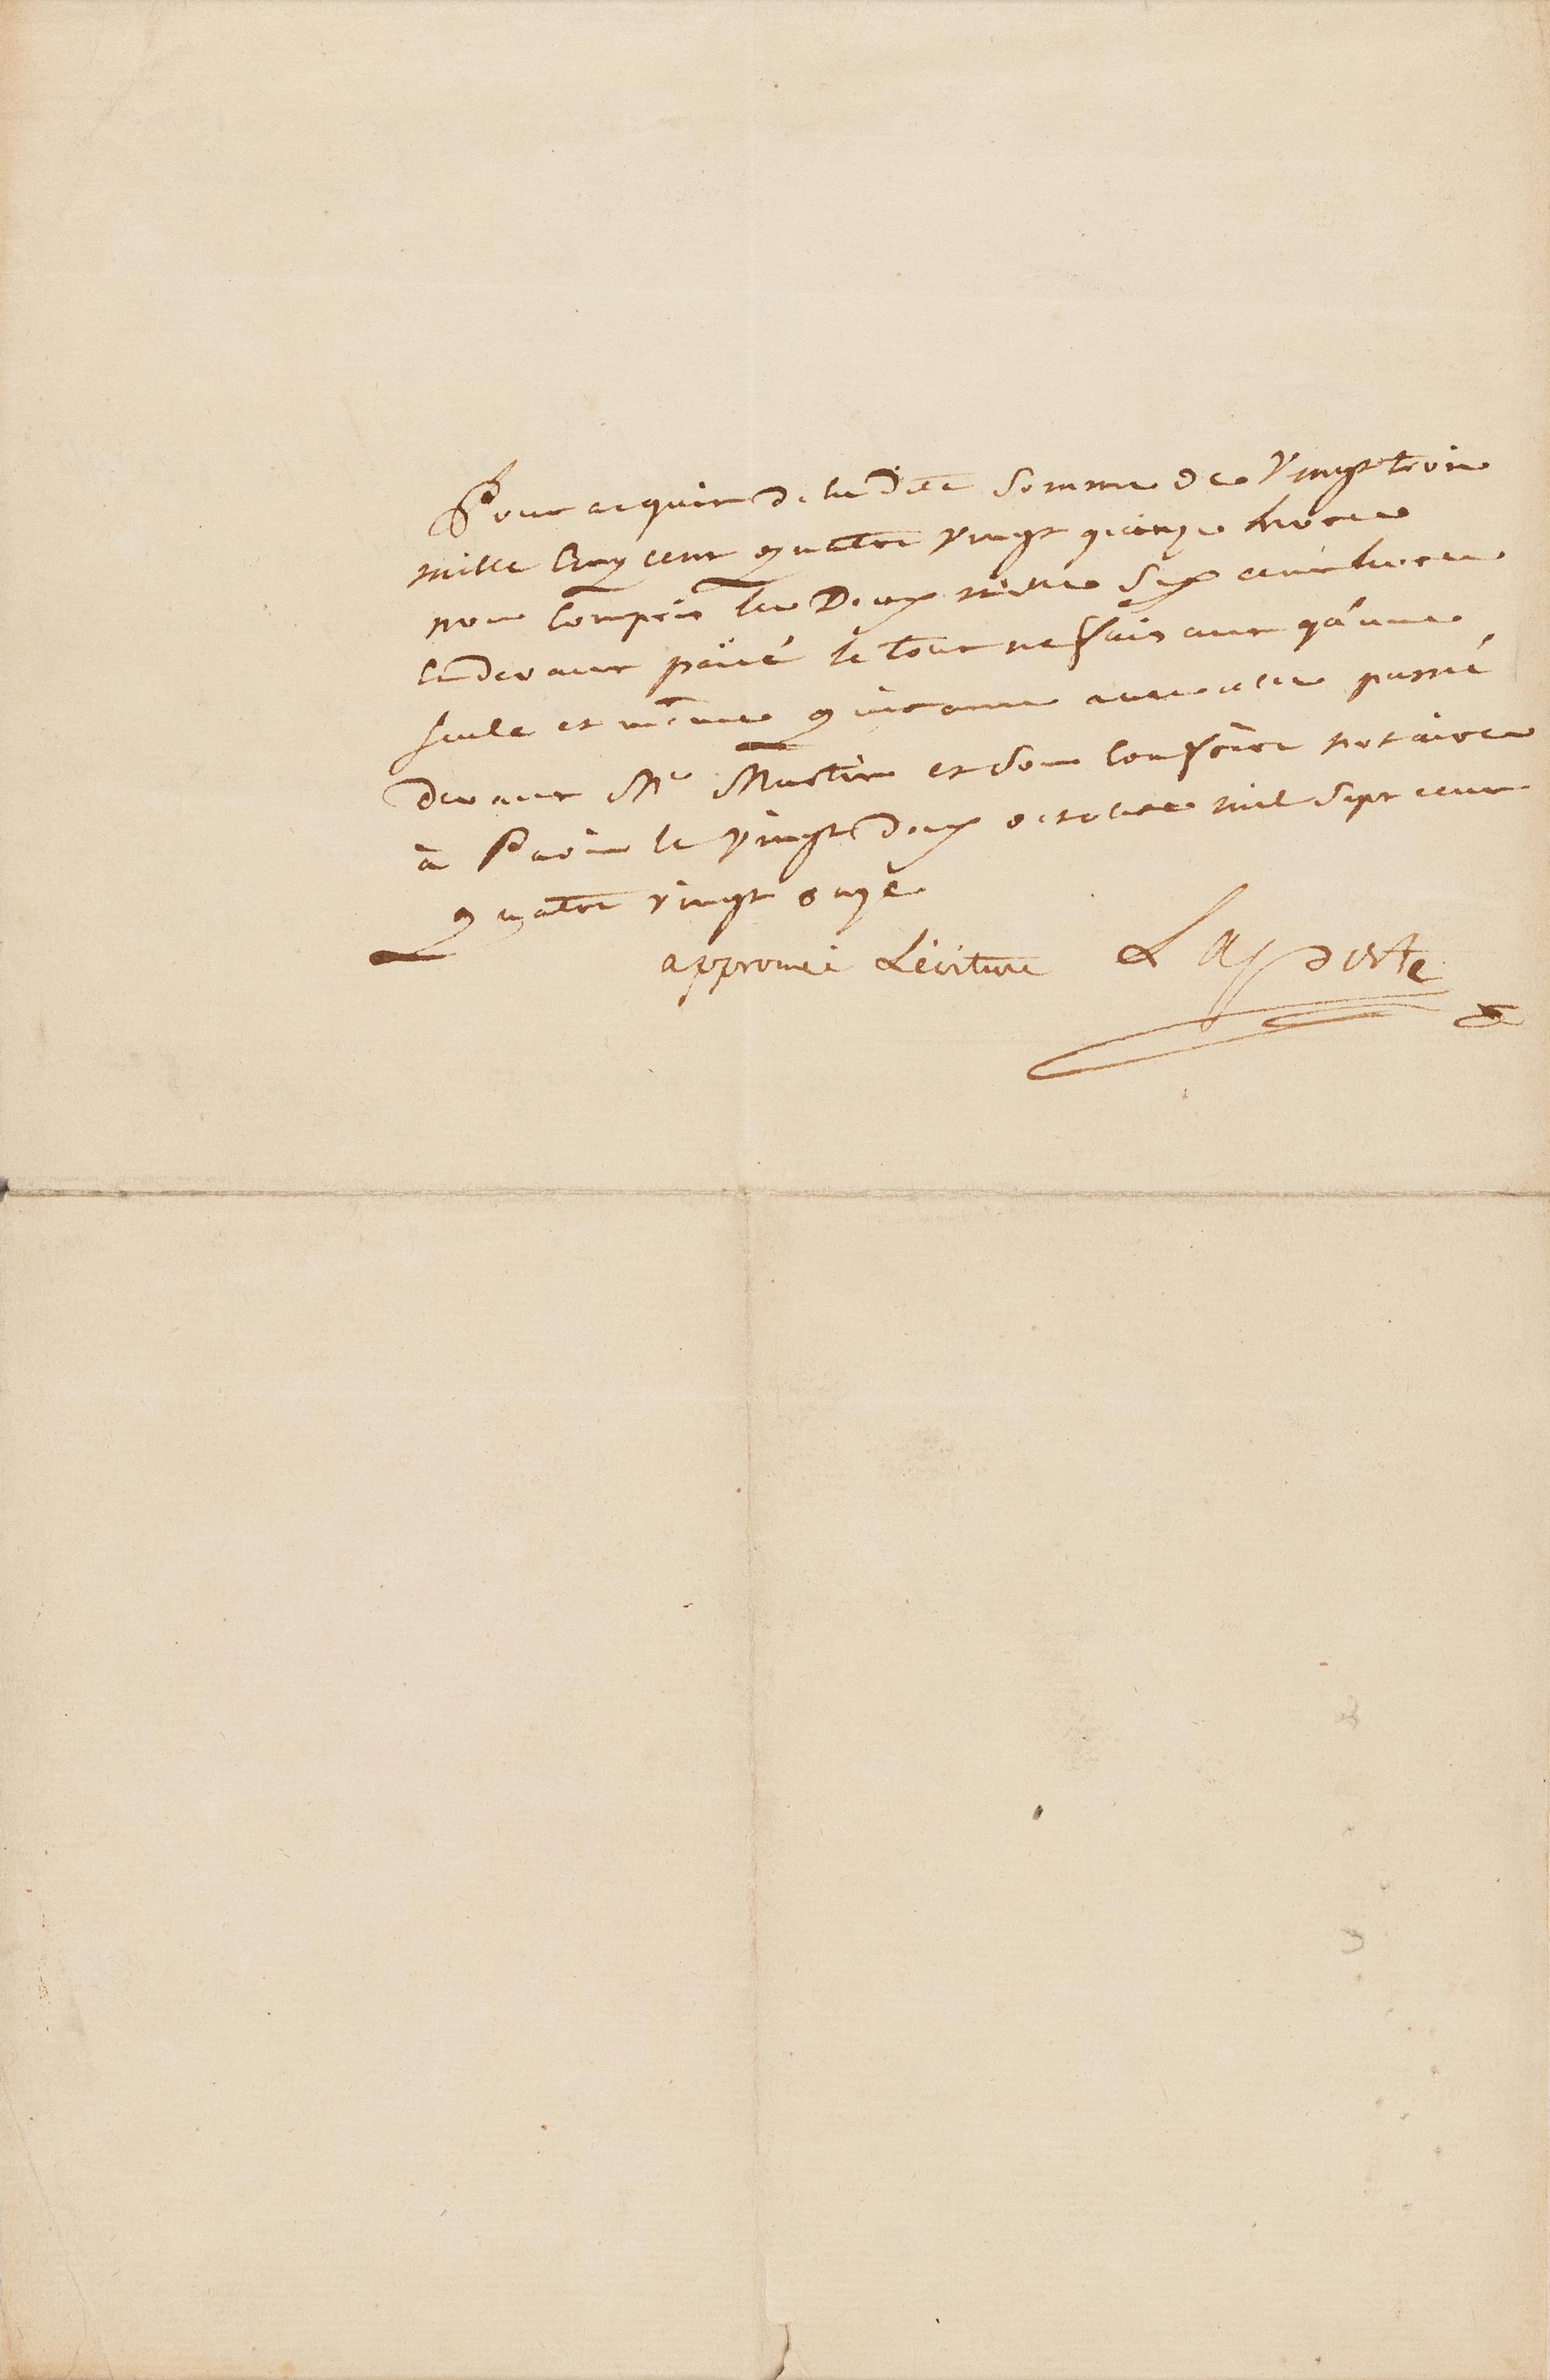 Pour acquit de la dite somme de vingt trois
mille Cinq cent quatre vingt quinze livres
non Compris les Deux mille Six cent livres
cy devant païé le tout ne faisant qu'une
seule et même quictance avec celle passé
devant Me Martin et Son Confrère notaires
à Paris le vingt Deux octobre mil Sept cent
quatre vingt onze
approuvé L'écriture Laporte